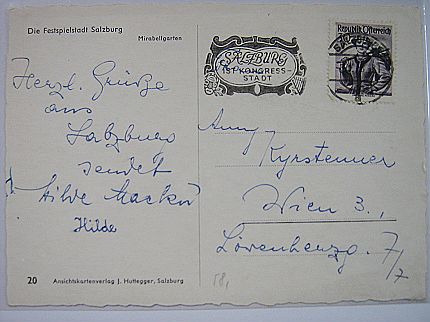 Die Festspielstadt Salzburg
Mirabellgarten
SALZBURG
IST KONGRESS-
STADT
Republik Österreich
Herzl. Grüße
aus
Salzburg
sendet
Hilde
Hilde
Wien 3.,
7/7
20
Ansichtskartenverlag J. Huttegger, Salzburg
58,